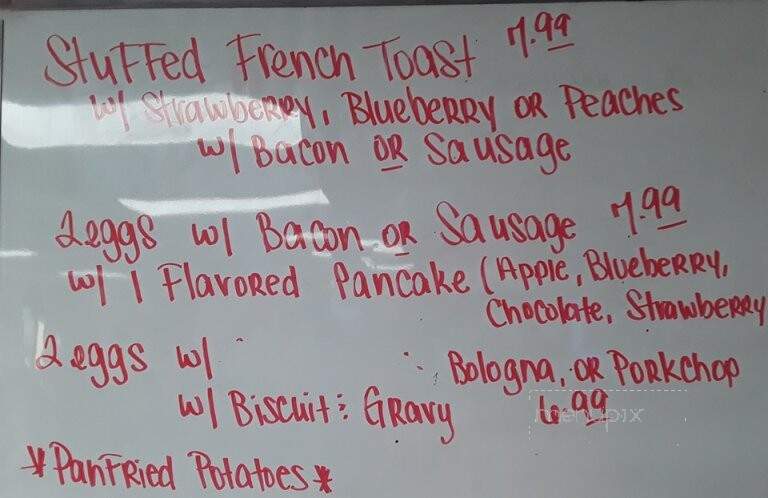 Stuffed French Toast 7.99
w/ Strawberry, Blueberry or Peaches
w/ Bacon or Sausage
2 eggs w/ Bacon or Sausage 7.99
w/ 1 Flavored Pancake (Apple, Blueberry,
Chocolate, Strawberry
2 eggs w/ Bologna, or Porkchop
w/ Biscuit : Gravy 6.99
*Panfried Potatoes*
menupix